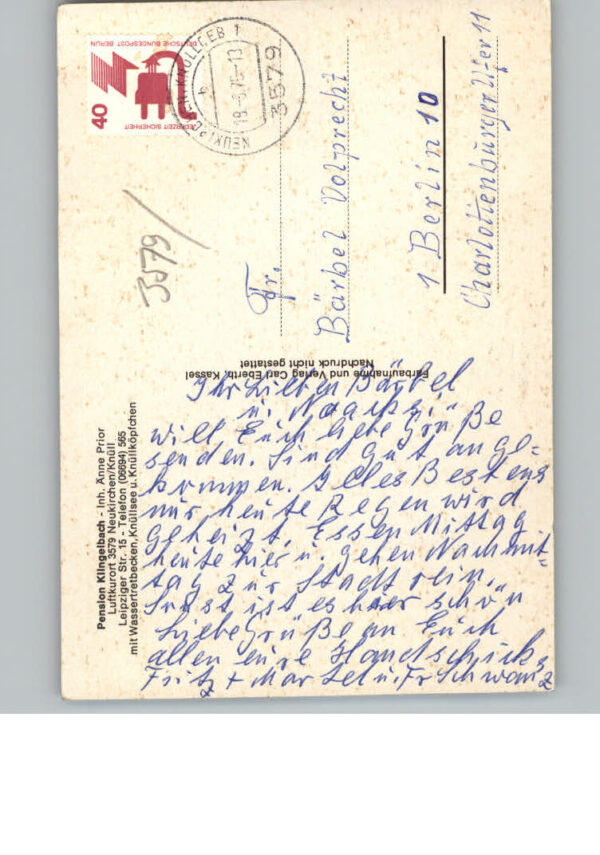 Pension Klingelbach - Inh. Änne Prior
Luftkurort 3579 Neukirchen/Knüll
Leipziger Str. 15 - Telefon (06694) 565
mit Wassertretbecken, Knüllsee u. Knüllköpfchen
Ihr Lieben Bärbel
will Euch liebe Grüße
senden. Sind gut ange-
kommen. Alles Bestens
nur heute Regen wird
geheizt. Essen Mittag
heute hier u. gehen Nachmit-
tag zur Stadt rein.
Sonst ist es hier schön
Liebe Grüße an Euch
allen eure Handschicks
Fritz + Martel u. Fr Schwanz
Farbaufnahme und Verlag Carl Eberth, Kassel
Nachdruck nicht gestattet
3579/
40
JEDERZEIT SICHERHEIT
DEUTSCHE BUNDESPOST BERLIN
3579
Fr.
Bärbel Volprecht
1 Berlin 10
Charlottenburger Ufer 11